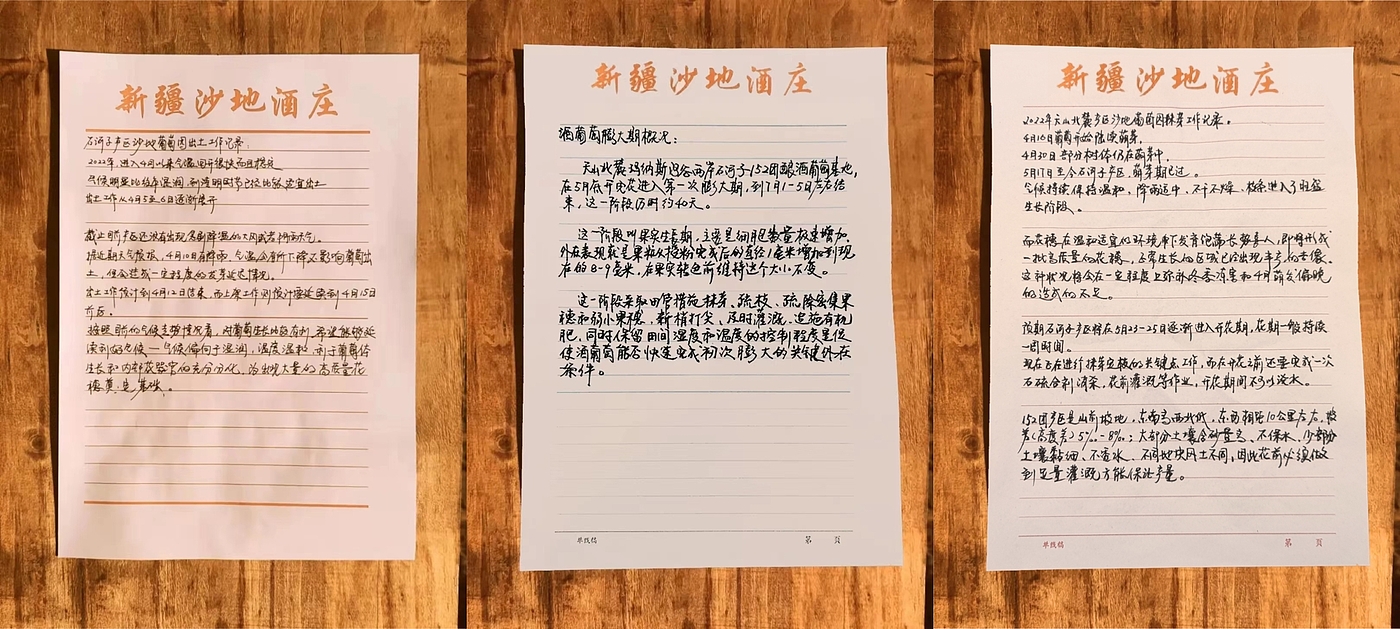 新疆沙地酒庄
石河子产区沙地葡萄园出土工作记录:
2022年,进入4月以来气温回升很快而且稳定
气候明显比往年湿润,到清明时节已经比较适宜出土
出土工作从4月5至6日逐渐展开
截止目前产区还没有出现急剧降温的大风或者倒春天气。
据近期天气预报,4月10日有降雨,气温会有所下降不影响葡萄出
土,但会造成一定程度的发芽延迟情况。
出土工作预计到4月12日结束,而上架工作则预计持续到4月15日
前后。
按照目前的气候走势情况看,对葡萄生长比较有利,希望能够延
续到好兆候一气候偏向于湿润,温度温和,利于葡萄休
生长和内部花器官的充分分化,为出现大量的高质量花
穗奠定基础。
新疆沙地酒庄
酒葡萄膨大期概况:
天山北麓玛纳斯河谷西岸石河子152团酿酒葡萄基地,
在5月底开花进入第一次膨大期,到7月1-5日左右结
束,这一阶段历时约40天。
这一阶段叫果实生长期,主要是细胞数量极速增加,
外在表现就是果粒从授粉完成后的直径1毫米增加到现
在的8-9毫米,在果实转色前维持这个大小不变。
这一阶段采取田管措施抹芽、疏枝、疏除密集果
穗和弱小果穗、新梢打尖、及时灌溉、追施有机
肥,同时保留田间湿度和温度的控制程度是促
使酒葡萄能否快速完成初次膨大的关键外在
条件。
单线稿 第 页
新疆沙地酒庄
2022年天山北麓产区沙地葡萄园抹芽工作记录。
4月16日葡萄开始陆续萌芽,
4月30日部分树体仍在萌芽中,
5月17日至今石河子产区,萌芽期已过。
气候持续保持温和、降雨适中、不干不燥、植株进入了旺盛
生长阶段。
而花穗在温和适宜的环境条件下发育饱满长势喜人,即将形成
一批高质量的花穗,正常生长的区域已经出现丰产的景像。
这种状况将会在一定程度上弥补冬季冻害和4月萌发偏晚
的造成的不足。
预期石河子产区将在5月23-25日逐渐进入开花期,花期一般持续
一周时间。
现在正在进行抹芽定梢的关键点工作,而在开花之前还要完成一次
石硫合剂清染,花前灌溉等作业,开花期间不可以浇水。
152团产区是山前坡地,东南高西北低,东西相距10公里左右,坡
差(高度差)5%-8%;大部分土壤含砂量高、不保水、少部分
土壤黏细、不透水、不同地块风土不同,因此花前必须做
到足量灌溉方能保证产量。
单线稿 第 页